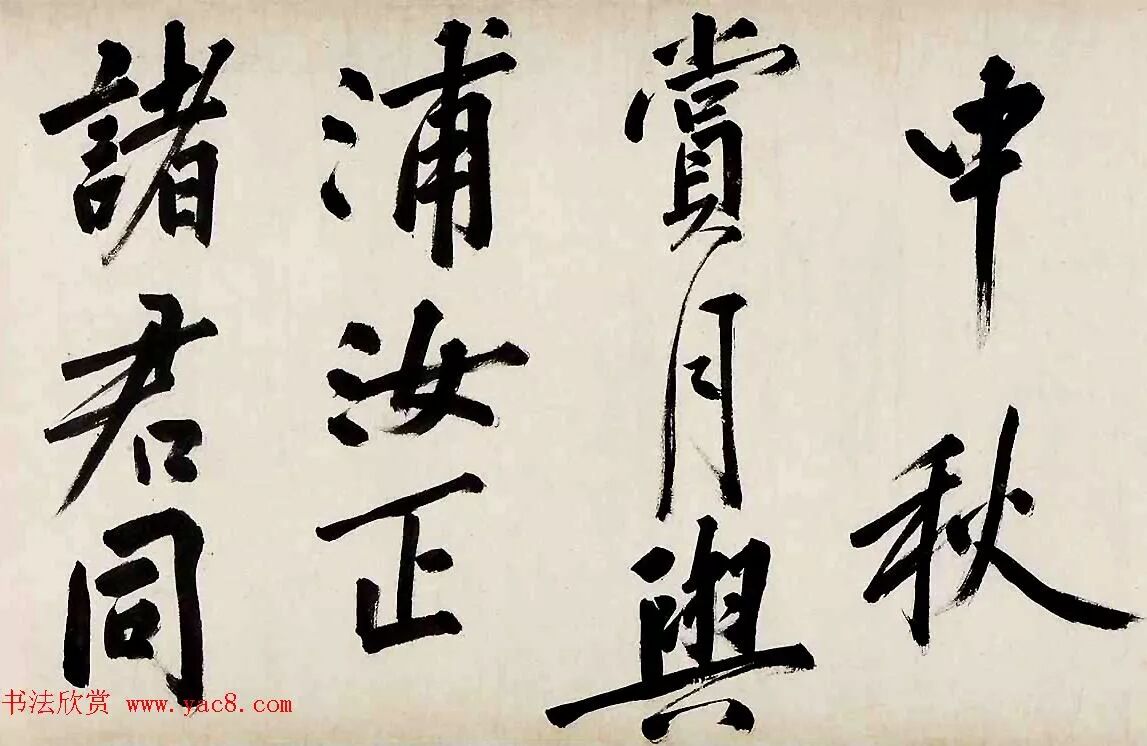 中秋
賞月與
浦汝正
諸君同
书法欣赏 www.yac8.com